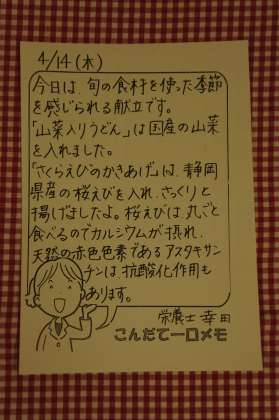 4/14(木)
今日は、旬の食材を使った季節
を感じられる献立です。
「山菜入りうどん」は国産の山菜
を入れました。
「さくらえびのかきあげ」は、静岡
県産の桜えびを入れ、さっくりと
揚げましたよ。桜えびは、丸ごと
食べるのでカルシウムが摂れ、
天然の赤色色素であるアスタキサン
チンは、抗酸化作用も
あります。
栄養士 幸田
こんだて一口メモ